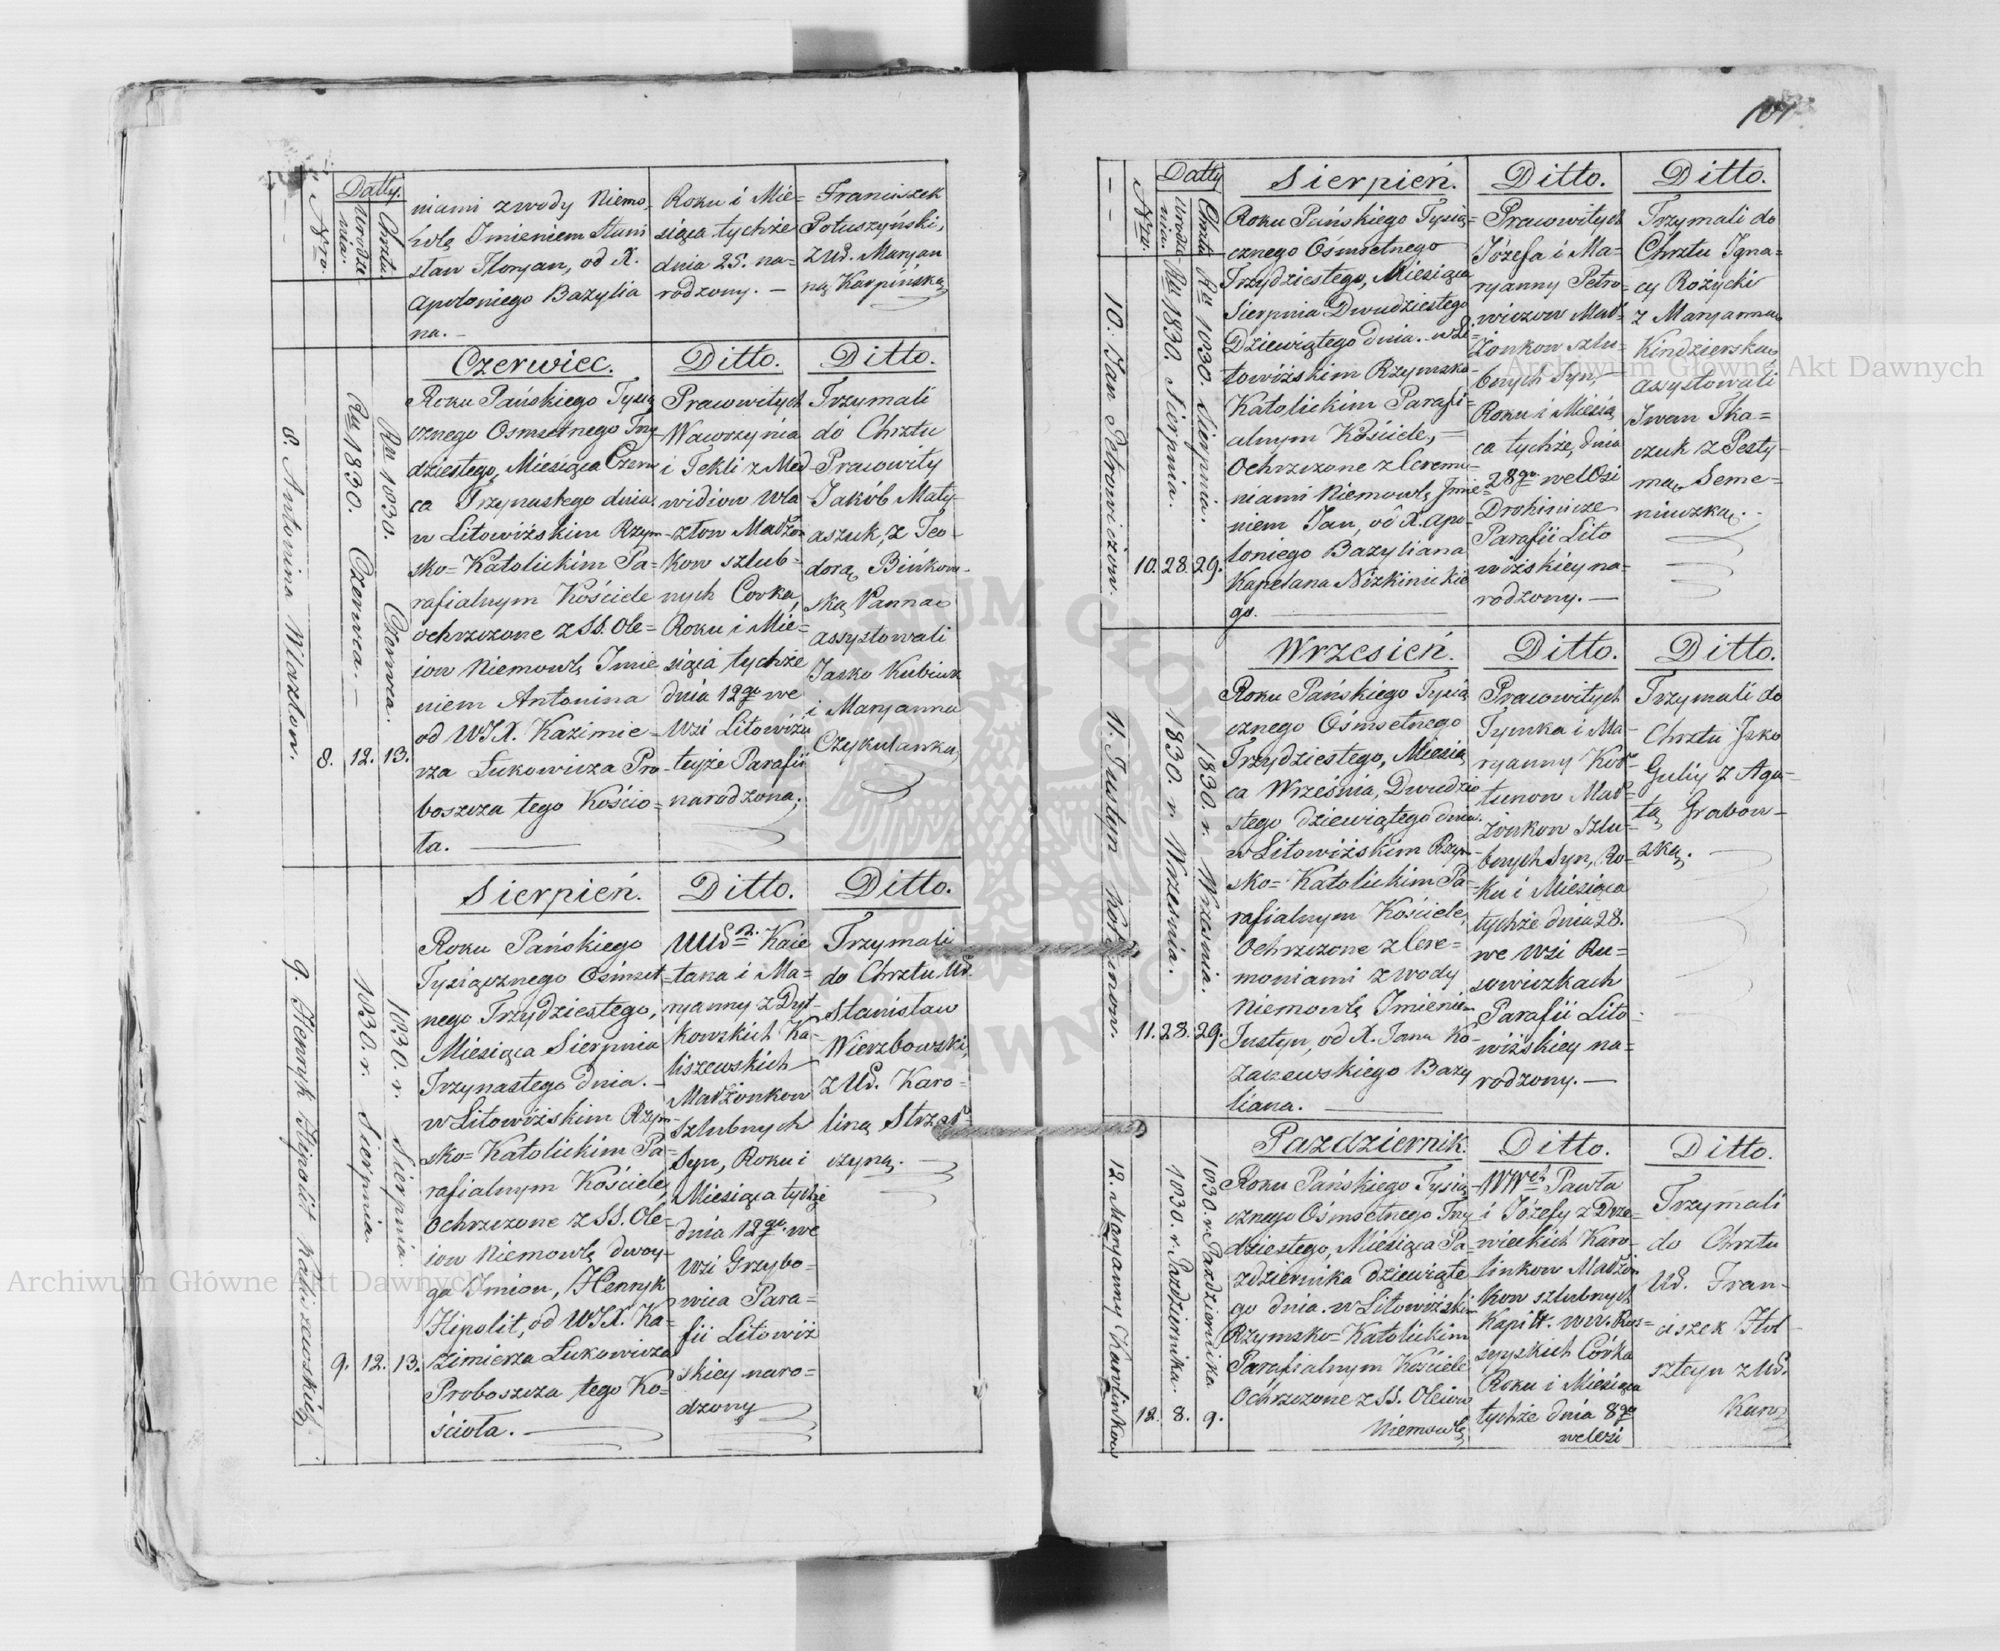 Nro.
Datty.
Urodze
nia.
Chrztu.
niami z wody Niemo,
wlę Imieniem Stani
sław Floryan, od X.
Apołoniego Bazylia
na. –
Roku i Mie=
siąca tychże
dnia 25. na=
rodzony. –
Franciszek
Potuszyński,
z Ud. Maryan
ną Karpińską
8. Antonina Wlosztow.
8.
Ru 1830. Czerwca. –
12.
Ru 1830. Czerwca.
13.
Czerwiec.
Roku Pańskiego Tysią
cznego Osmsetnego Trzy
dziestego, Miesiąca Czerw
ca Trzynastego dnia.
w Litowiżskim Rzym=
sko=Katolickim Pa=
rafialnym Kościele
ochrzczone z SS. Ole=
iow Niemowlę Imie
niem Antonina
od WJX. Kazimie=
rza Łukowicza Pro
boszcza tego Kościo=
ła. –
Ditto.
Prawowitych
Wawrzyńca
i Tekli z Med
widiow Wlo
sztow Małżon
kow szlub=
nych Corka,
Roku i Mie=
siąca tychże
dnia 12go we
Wsi Litowiżu
teyże Parafii
narodzona;
Ditto.
Trzymali
do Chrztu
Prawowity
Jakób Maty=
aszuk, z Teo=
dorą Bińkow=
ską Panną
assystowali
Jasko Kubiuk
i Maryanna
Czykulanka,
9. Henryk Hipolit Kaliszewskich
9.
1830. r. Sierpnia
12.
1830. r. Sierpnia.
13.
Sierpień.
Roku Pańskiego
Tysiącznego Ośmset
nego Trzydziestego,
Miesiąca Sierpnia
Trzynastego dnia. –
w Litowiżskim Rzym=
sko=Katolickim Pa=
rafialnym Kościele,
Ochrzczone z SS. Ole=
iow Niemowlę dwoy=
ga Imion, Henryk
Hipolit, od WJX. Ka=
zimierza Łukowicza
Proboszcza tego Ko=
ścioła. –
Ditto.
Kaie
tana i Ma=
ryanny z Dyt=
kowskich Ka=
liszewskich
Małżonkow
szlubnych
Syn, Roku i
Miesiąca tychże
dnia 12go we
Wsi Grzybo=
wica Para=
fii Litowiż
skiey naro=
dzony
Ditto.
Trzymali
do Chrztu Ud.
Stanisław
Wierzbowski,
z Ud. Karo=
liną Strzał=
czyną. –
101
Nro.
Datty
Urodze
nia.
Chrztu
10. Jan Petrowiczow.
10.
Ru 1830. Sierpnia.
28.
Ru 1830. Sierpnia.
29.
Sierpień.
Roku Pańskiego Tysią=
cznego Ośmsetnego
Trzydziestego, Miesiąca
Sierpnia Dwudziestego
Dziewiątego dnia. w Li=
towiżskim Rzymsko=
Katolickim Parafi=
alnym Kościele, –
Ochrzczone z Ceremo=
niami Niemowlę Imie=
niem Jan, od X. Apo=
łoniego Bazyliana
Kapelana Nizkinickie
go.
Ditto.
Prawowitych
Józefa i Ma=
ryanny Petro=
wiczow Mał=
żonkow szlu=
bnych Syn, –
Roku i Miesią
ca tychże, dnia
28go we Wsi
Drohinicze
Parafii Lito
wiżskiey na=
rodzony. –
Ditto.
Trzymali do
Chrztu Igna=
cy Rożycki
z Maryanną
Kindzierską
assystowali
Iwan Tka=
czuk z Pesty=
mą Seme=
niuczką. –
11. Justyn Kołtunow.
11.
1830. r. Września.
28.
1830. r. Września.
29.
Wrzesień.
Roku Pańskiego Tysią
cznego Ośmsetnego
Trzydziestego, Miesią
ca Września, Dwudzie
stego dziewiątego dnia.
w Litowiżskim Rzym
sko=Katolickim Pa=
rafialnym Kościele,
Ochrzczone z Cere=
moniami z wody
Niemowlę Imieniem
Justyn, od X. Jana Ko=
zaczewskiego Bazy
liana.
Ditto.
Prawowitych
Tymka i Ma=
ryanny Koł=
tunow Mał=
żonkow szlu=
bnych Syn, Ro=
ku i Miesiąca
tychże dnia 28.
we Wsi Ru=
sowiczkach
Parafii Lito=
wiżskiey na=
rodzony. –
Ditto.
Trzymali do
Chrztu Jsko
Guliy z Aga=
tą Grabow=
zką. –
12. Maryanny Karolinkow
12.
1830. r. Pazdziernika.
8.
1830. r. Pazdziernika
9.
Pazdziernik.
Roku Pańskiego Tysią
cznego Ośmsetnego Trzy
dziestego, Miesiąca Pa=
zdziernika dziewiąte
go dnia. w Litowiżskim
Rzymsko=Katolickim
Parafialnym Kościele
Ochrzczone z SS. Oleiow
Niemowlę
Ditto.
WWch Pawła
i Józefy z Drze=
wieckich Karo=
linkow Małżon
kow szlubnych
Kapit. ww. Ros=
syyskich Córka
Roku i Miesiąca
tychże dnia 8go
we Wsi
Ditto.
Trzymali
do Chrztu
Ud. Fran=
ciszek Hol=
szteyn z Ud.
Karo
Archiwum Główne Akt Dawnych
Archiwum Główne Akt Dawnych